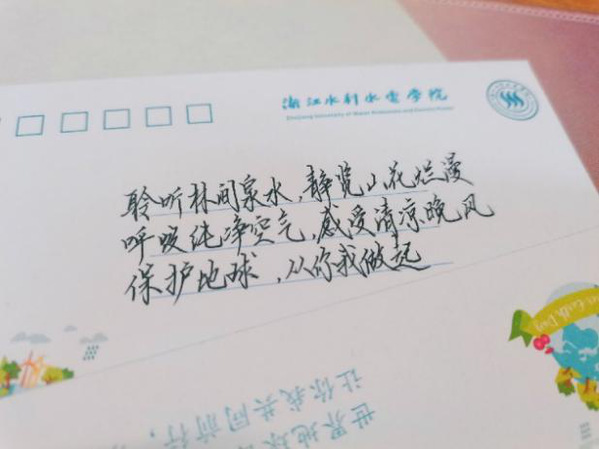 浙江水利水电学院
聆听林间泉水，静览山花烂漫
呼吸纯净空气，感受清凉晚风
保护地球，从你我做起
世界地球
让你我共同前行，
Earth Day